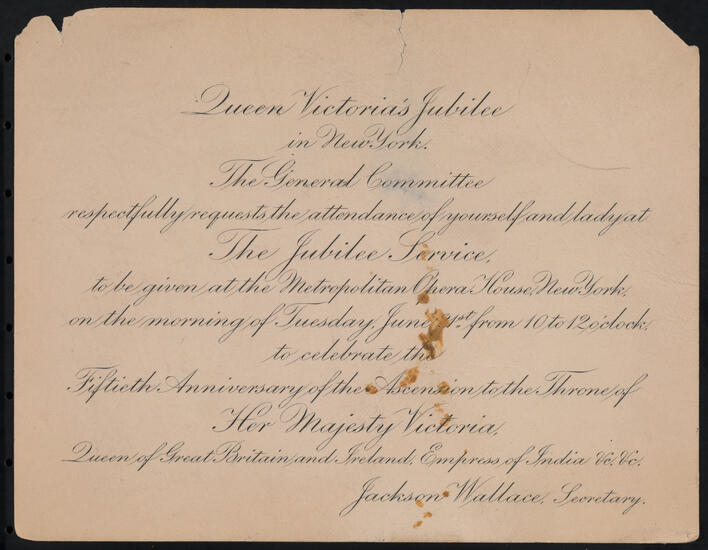 Queen Victoria's Jubilee
in New York.
The General Committee
respectfully requests the attendance of yourself and lady at
The Jubilee Service,
to be given at the Metropolitan Opera House, New York,
on the morning of Tuesday, June 21st from 10 to 12 o'clock,
to celebrate the
Fiftieth Anniversary of the Ascension to the Throne of
Her Majesty Victoria,
Queen of Great Britain and Ireland, Empress of India &c. &c.
Jackson Wallace, Secretary.